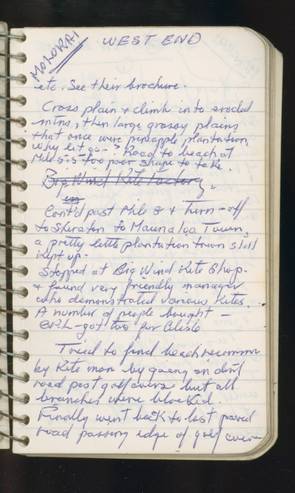 MOLOKAI
WEST END
etc. See their brochure.
Cross plain & climb into eroded
mtns, then large grassy plains
that once were pineapple plantation.
Why let go - ? Road to beach at
Mile 815 too poor shape to take.
Big Wind Kite Factory
Cont'd past Mile & turn-off
to Sheraton to Mauna Loa Town,
a pretty little plantation town still
kept up.
Stopped at Big Wind Kite Shop.
& found very friendly manager
who demonstrated various kites.
A number of people bought -
got two for
Tried to find beach recomm
by Kite man by going on dirt
road past golf course but all
branches were blocked.
Finally went back to last paved
road passing edge of golf course